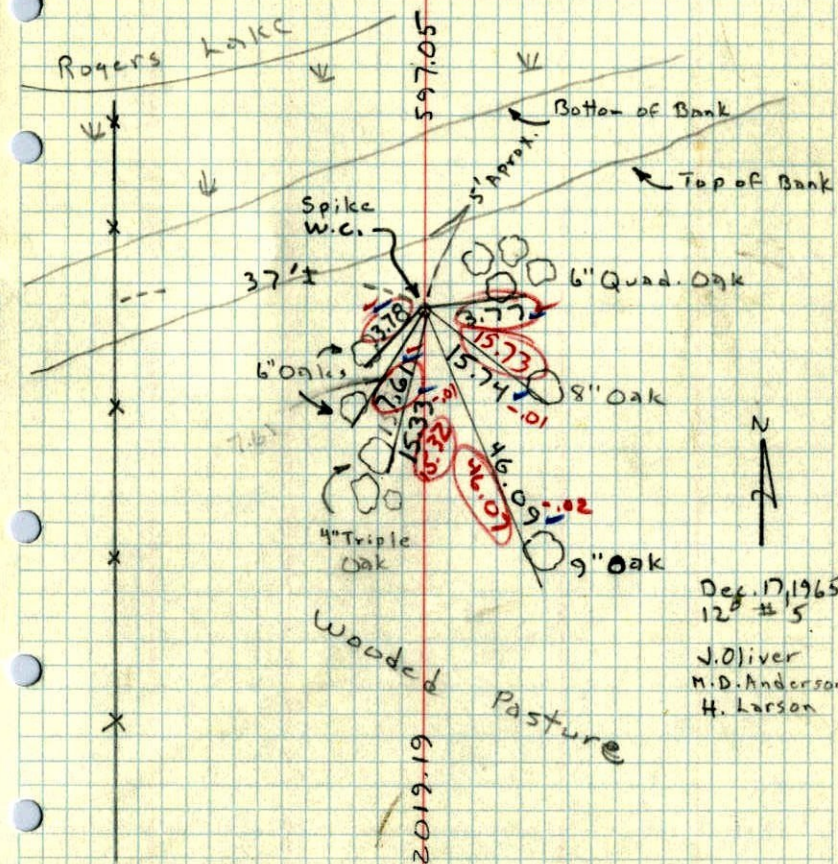 Rogers Lake
597.05
Bottom of Bank
5' Aprox.
Top of Bank
Spike
W.C.
37'±
6" Quad. Oak
3.78
3.77
15.73
15.74
-.01
8" Oak
6" Oaks
7.61
7.61
15.33
-.01
5.32
46.09
-.02
46.07
4" Triple
Oak
9" Oak
N
Dec. 17, 1965
12° # 5
J. Oliver
M.D. Anderson
H. Larson
Wooded Pasture
2019.19